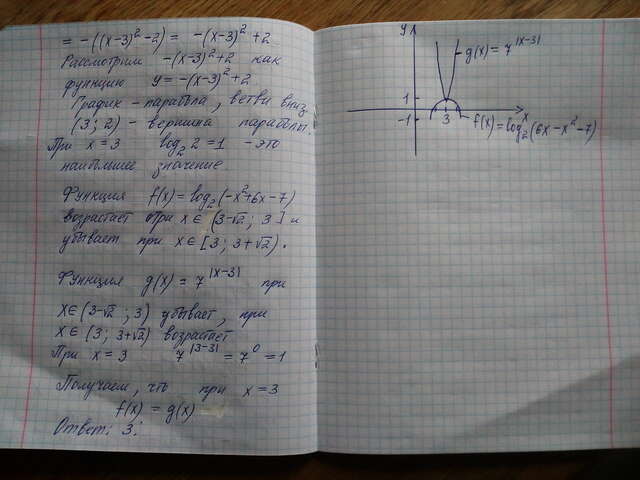 = -((x-3)²-2) = -(x-3)²+2
Рассмотрим -(x-3)²+2 как
функцию y = -(x-3)²+2
График - парабола, ветви вниз
(3; 2) - вершина параболы.
При x = 3 log₂ 2 = 1 - это
наибольшее значение.
Функция f(x) = log₂(-x²+6x-7)
возрастает при x ∈ (3-√2; 3] и
убывает при x ∈ [3; 3+√2).
Функция g(x) = 7^|x-3| при
x ∈ (3-√2; 3) убывает, при
x ∈ (3; 3+√2) возрастает
При x = 3 7^|3-3| = 7⁰ = 1
Получаем, что при x = 3
f(x) = g(x)
Ответ: 3;
y
g(x) = 7^|x-3|
1
-1
3
x
f(x) = log₂(6x-x²-7)